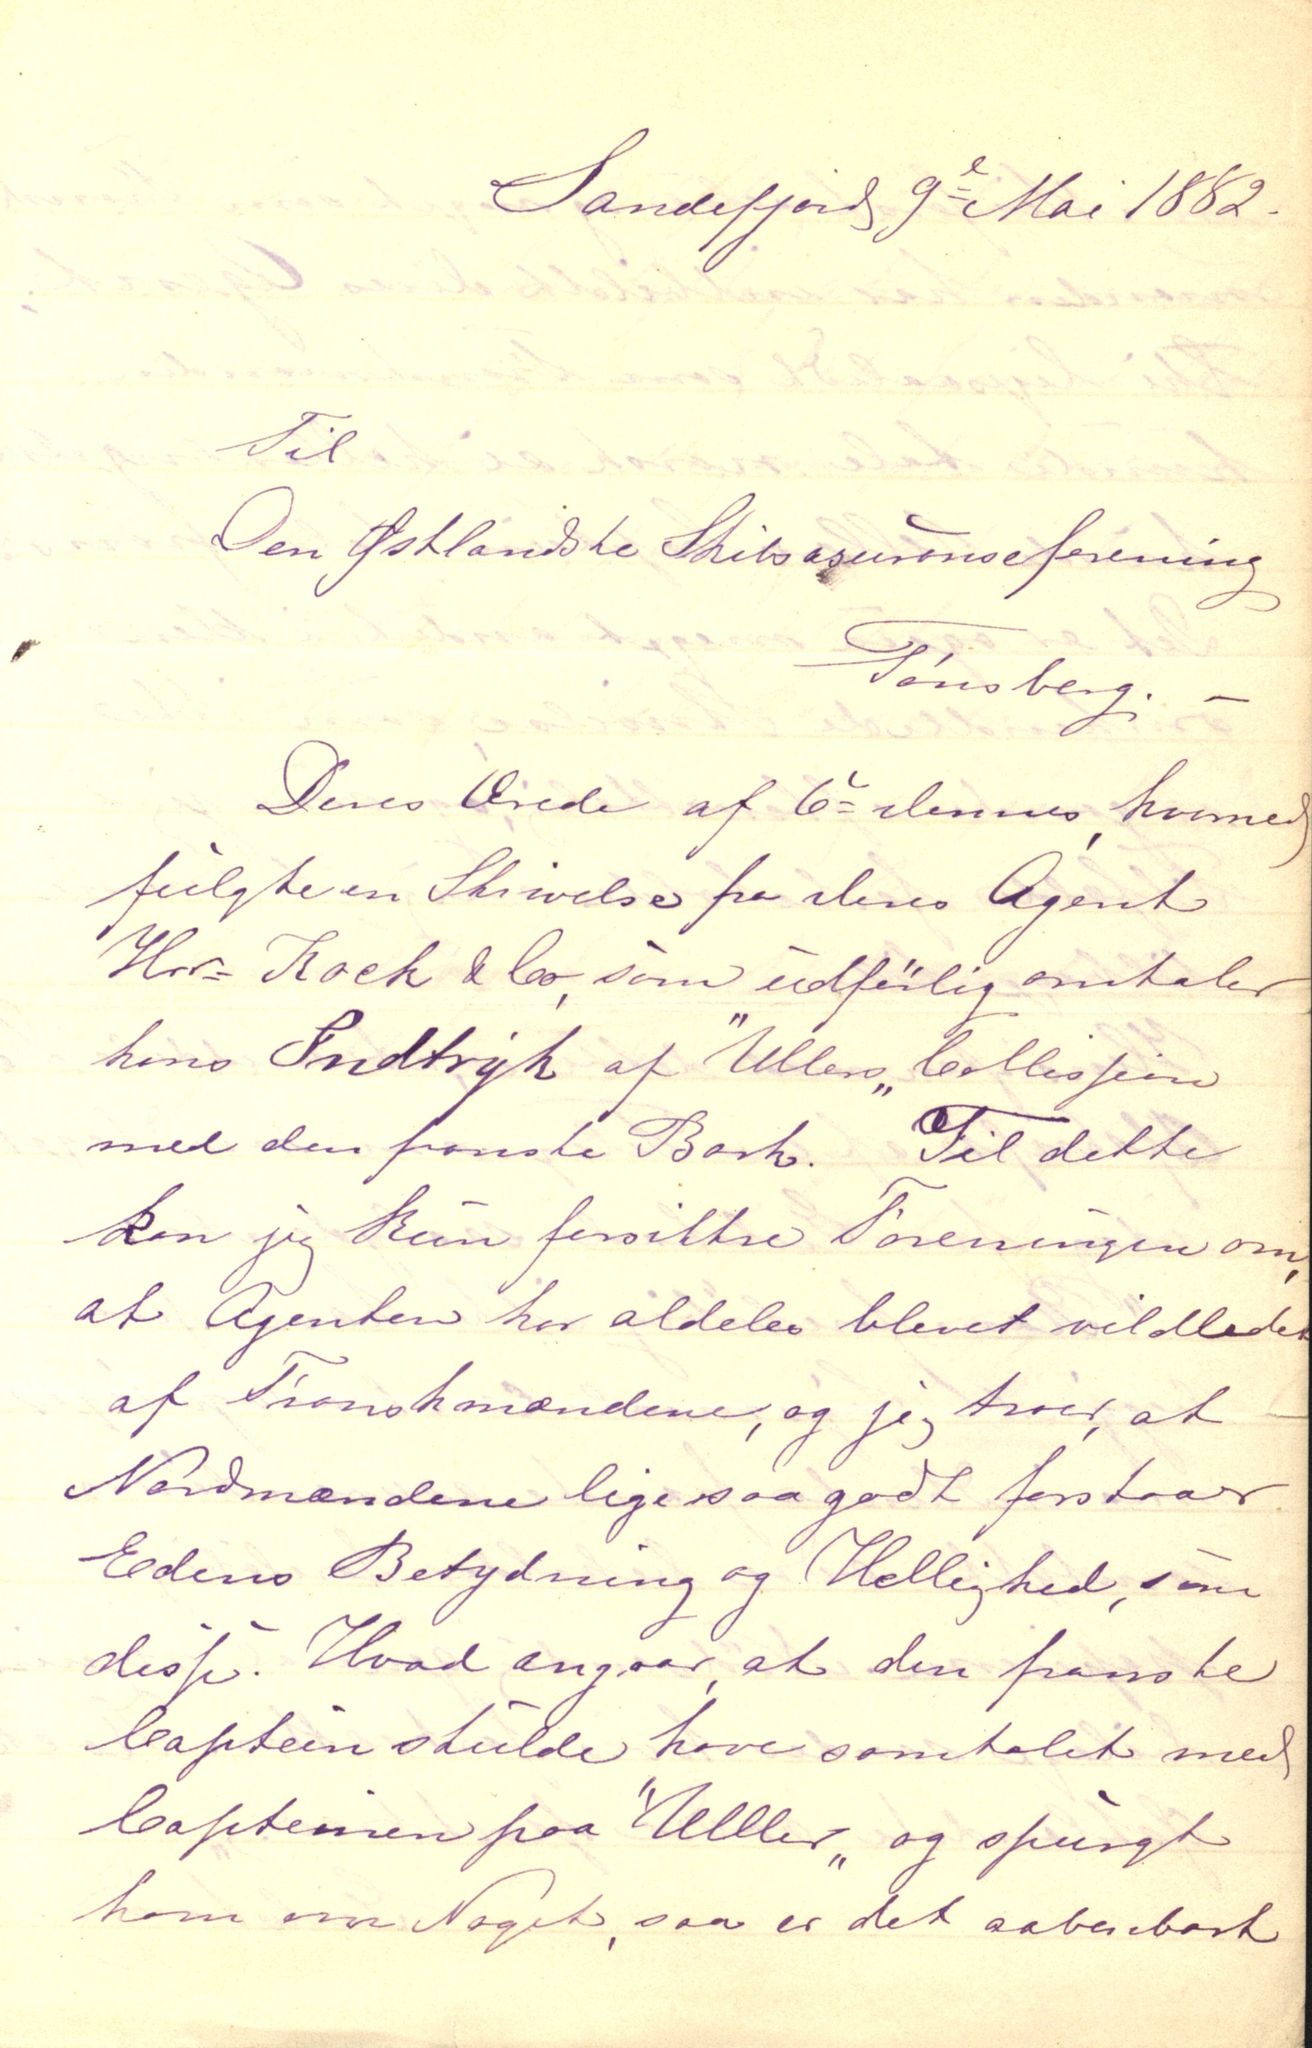 Sandefjord 9de Mai 1882.
Til
Den Østlandske Skibsasuranseforening
Tønsberg. –
Deres Ærede af 6te dennes, hvormed
fulgte en Skrivelse fra deres Agent
Hrr= Kock & Co, som udførlig omtaler
hans Indtryk af "Ullers„ Collisjon
med den franske Bark. Til dette
kan jeg kun forsikkre Foreningen om,
at Agenten har aldeles blevet vildledet
af Franskmændene, og jeg troer, at
Nordmændene ligesaagodt forstaar
Edens Betydning og Hellighed, som
disse. Hvad angaar, at den franske
Captein skulde have samtalet med
Capteinen paa "Uller„ og spurgt
ham om Noget, saa er det aabenbart